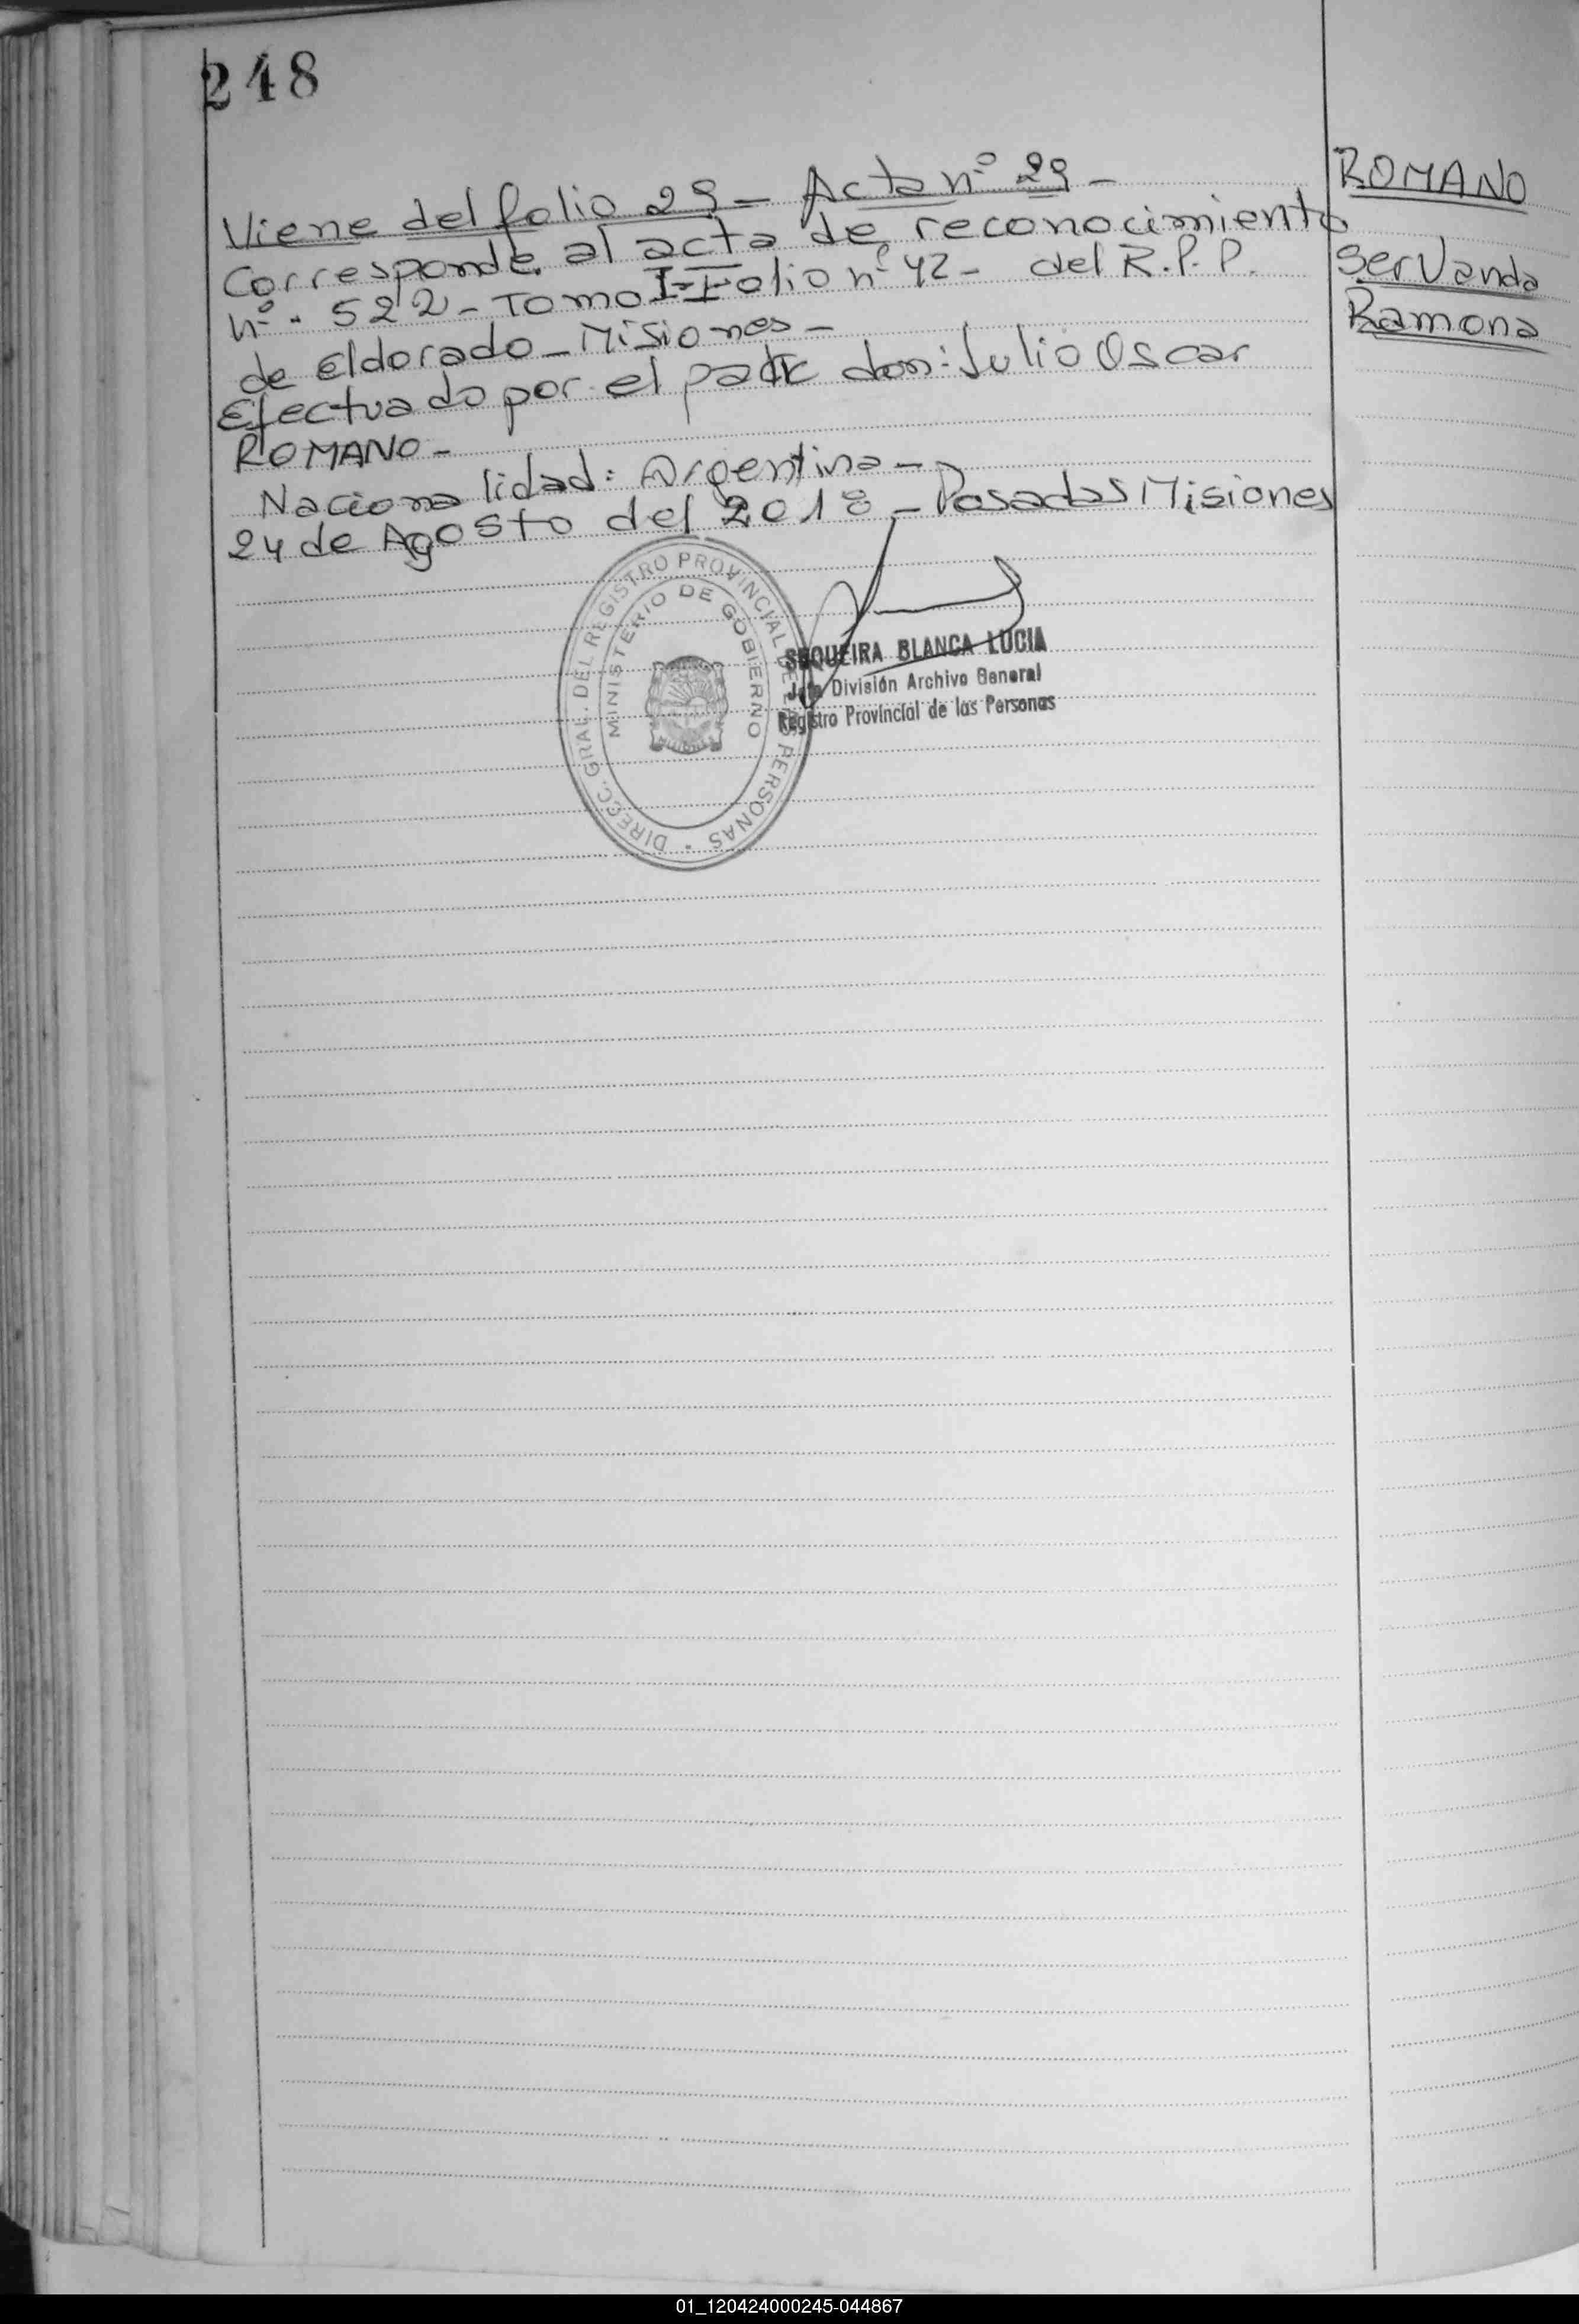 248
Viene del folio 29 - Acta nº 29 -
Corresponde al acta de reconocimiento
nº. 522 - Tomo I - Folio nº 42 - del R.P.P.
de Eldorado - Misiones -
Efectuado por el padre don: Julio Oscar
ROMANO -
Nacionalidad: Argentina -
24 de Agosto del 2018 - Posadas Misiones
ROMANO
Servanda
Ramona
DIRECC. GRAL. DEL REGISTRO PROVINCIAL DE LAS PERSONAS
MINISTERIO DE GOBIERNO
SEQUEIRA BLANCA LUCIA
Jefe División Archivo General
Registro Provincial de las Personas
01_120424000245-044867